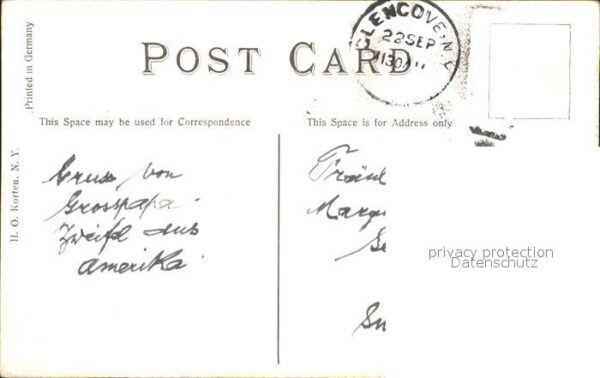 POST CARD
GLENCOVE, N.Y.
22 SEP
1130A
Printed in Germany
This Space may be used for Correspondence
This Space is for Address only
H. O. Korten, N. Y.
Gruss von
Grosspapa
Zweifel aus
Amerika
Fräul
Marg
privacy protection
Datenschutz